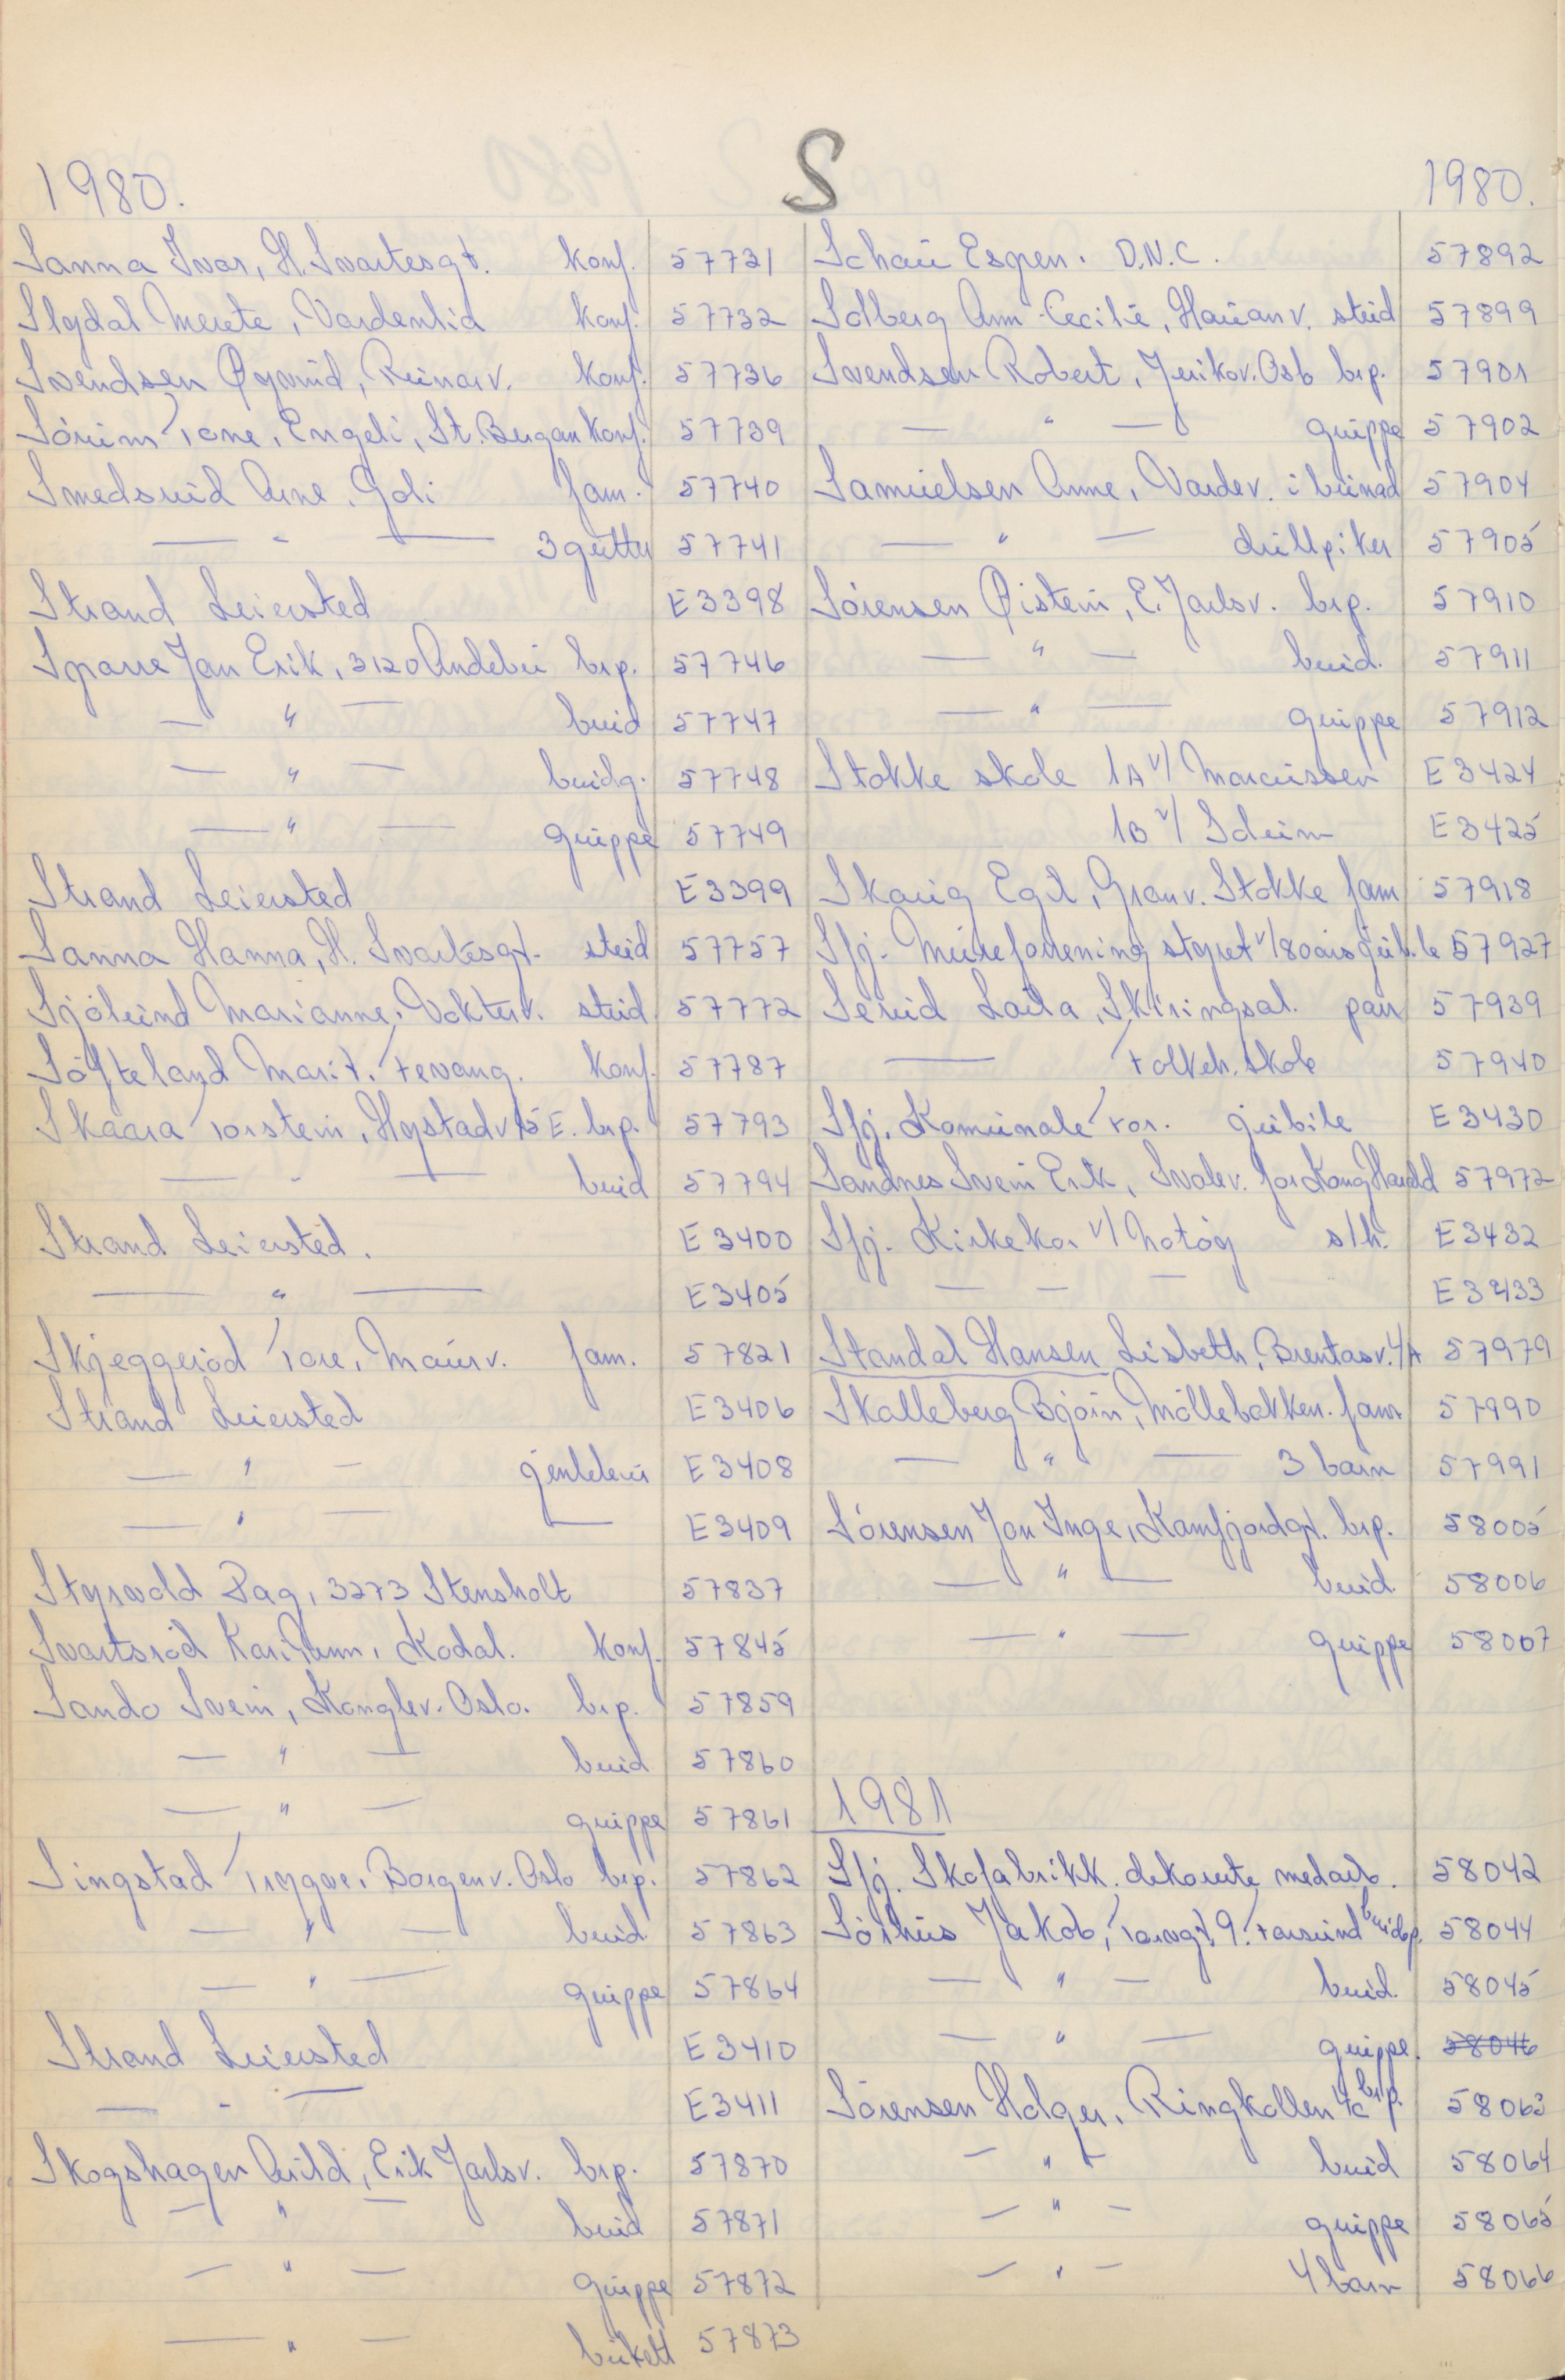 S
1980.
1980.
Sanna Ivar, H. Svartesgt. konf. 57731
Slydal Merete, Vardenlia konf. 57732
Svendsen Øyvind, Runarv. konf. 57736
Sörum Tone, Engeli, St. Bergan konf. 57739
Smedsrud Arne, Goli fam. 57740
— " — 3 gutter 57741
Strand Leiersted E3398
Sparre Jan Erik, 3120 Andebu brp. 57746
— " — brud 57747
— " — brudg. 57748
— " — gruppe 57749
Strand Leiersted E3399
Sanna Hanna, H. Svartesgt. stud 57757
Sjölund Marianne, Vokterv. stud 57772
Söfteland Marit, Fevang. konf. 57787
Skaara Torstein, Hystadv 15 E. brp. 57793
— " — brud 57794
Strand Leiersted. E3400
— " — E3405
Skjeggeröd Tore, Maurv. fam. 57821
Strand Leiersted E3406
— " — gjenlevn E3408
— " — — E3409
Styrvold Dag, 3273 Stensholt 57837
Svartsröd Kari Ann, Kodal. konf. 57845
Sando Svein, Konglev. Oslo. brp. 57859
— " — brud 57860
— " — gruppe 57861
Singstad Trygve, Borgenv. Oslo brp. 57862
— " — brud 57863
— " — gruppe 57864
Strand Leiersted E3410
— " — E3411
Skogshagen Arild, Erik Jarlsv. brp. 57870
— " — brud 57871
— " — gruppe 57872
— " — bukett 57873
Schau Espen. D.N.C. 57892
Solberg Ann-Cecilie, Hauanv. stud 57899
Svendsen Robert, Jerikov. Oslo brp. 57901
— " — gruppe 57902
Samuelsen Anne, Vardev. i bunad 57904
— " — drillpiker 57905
Sörensen Øistein, E. Jarlsv. brp. 57910
— " — brud. 57911
— " — gruppe 57912
Stokke skole 1A v/ Marcussen E3424
1B v/ Solum E3425
Skaug Egil, Granv. Stokke fam 57918
Sfj. Murerforrening styret v/80års jub. le 57927
Serud Laila, Skiringsal. par 57939
— Folkeh. skole 57940
Sfj. Komunale For. jubile E3430
Sandnes Svein Erik, Svalev. for Kong Harald 57972
Sfj. Kirkekor v/ Notög s/h. E3432
— — — E3433
Standal Hansen Lisbeth, Brentasv. 4A 57979
Skalleberg Bjørn, Möllebakken. fam 57990
— " — 3 barn 57991
Sörensen Jan Inge, Kamfjordgt. brp. 58005
— " — brud. 58006
— " — gruppe 58007
1981
Sfj. Skofabrikk. dekorerte medarb. 58042
Sörhus Jakob, Torvgt. 9. Farsund brudep. 58044
— " — brud. 58045
— " — gruppe. 58046
Sörensen Holger, Ringkollen 4c brp. 58063
— " — brud 58064
— " — gruppe 58065
— " — 4 barn 58066